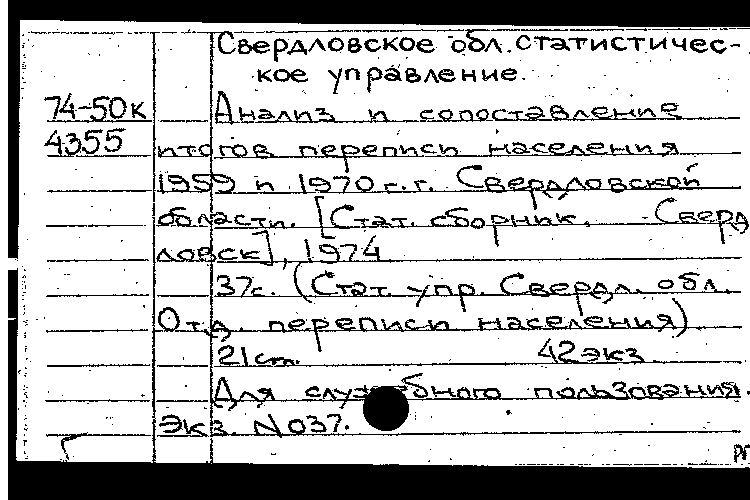 Свердловское обл. статистичес-
кое управление.
74-50к Анализ и сопоставление
4355 итогов переписи населения
1959 и 1970 г.г. Свердловской
области. [Стат. сборник. Сверд
ловск], 1974
37с. (Стат. упр. Свердл. обл.
Отд. переписи населения)
21 см. 42 экз.
Для служебного пользования.
Экз. № 037.